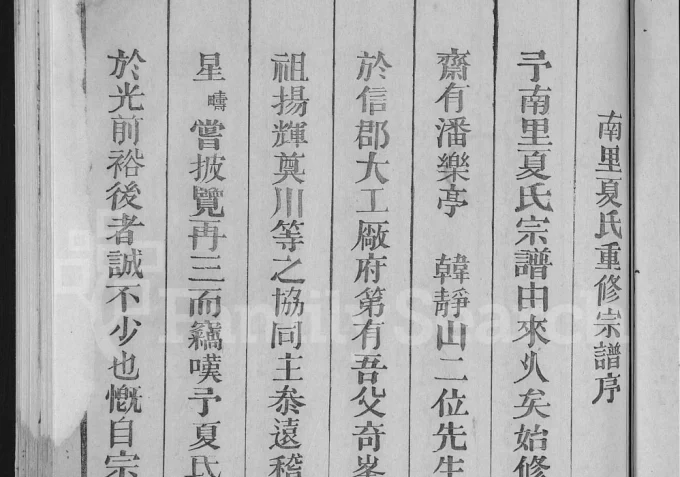 南里夏氏重修宗譜序
予南里夏氏宗譜由來乆矣始修
齋有潘樂亭　韓靜山二位先生
於信郡大工廠府第有吾父奇峯
祖揚輝奠川等之協同主泰遠稽
星疇嘗披覽再三而竊嘆予夏氏
於光前裕後者誠不少也慨自宗